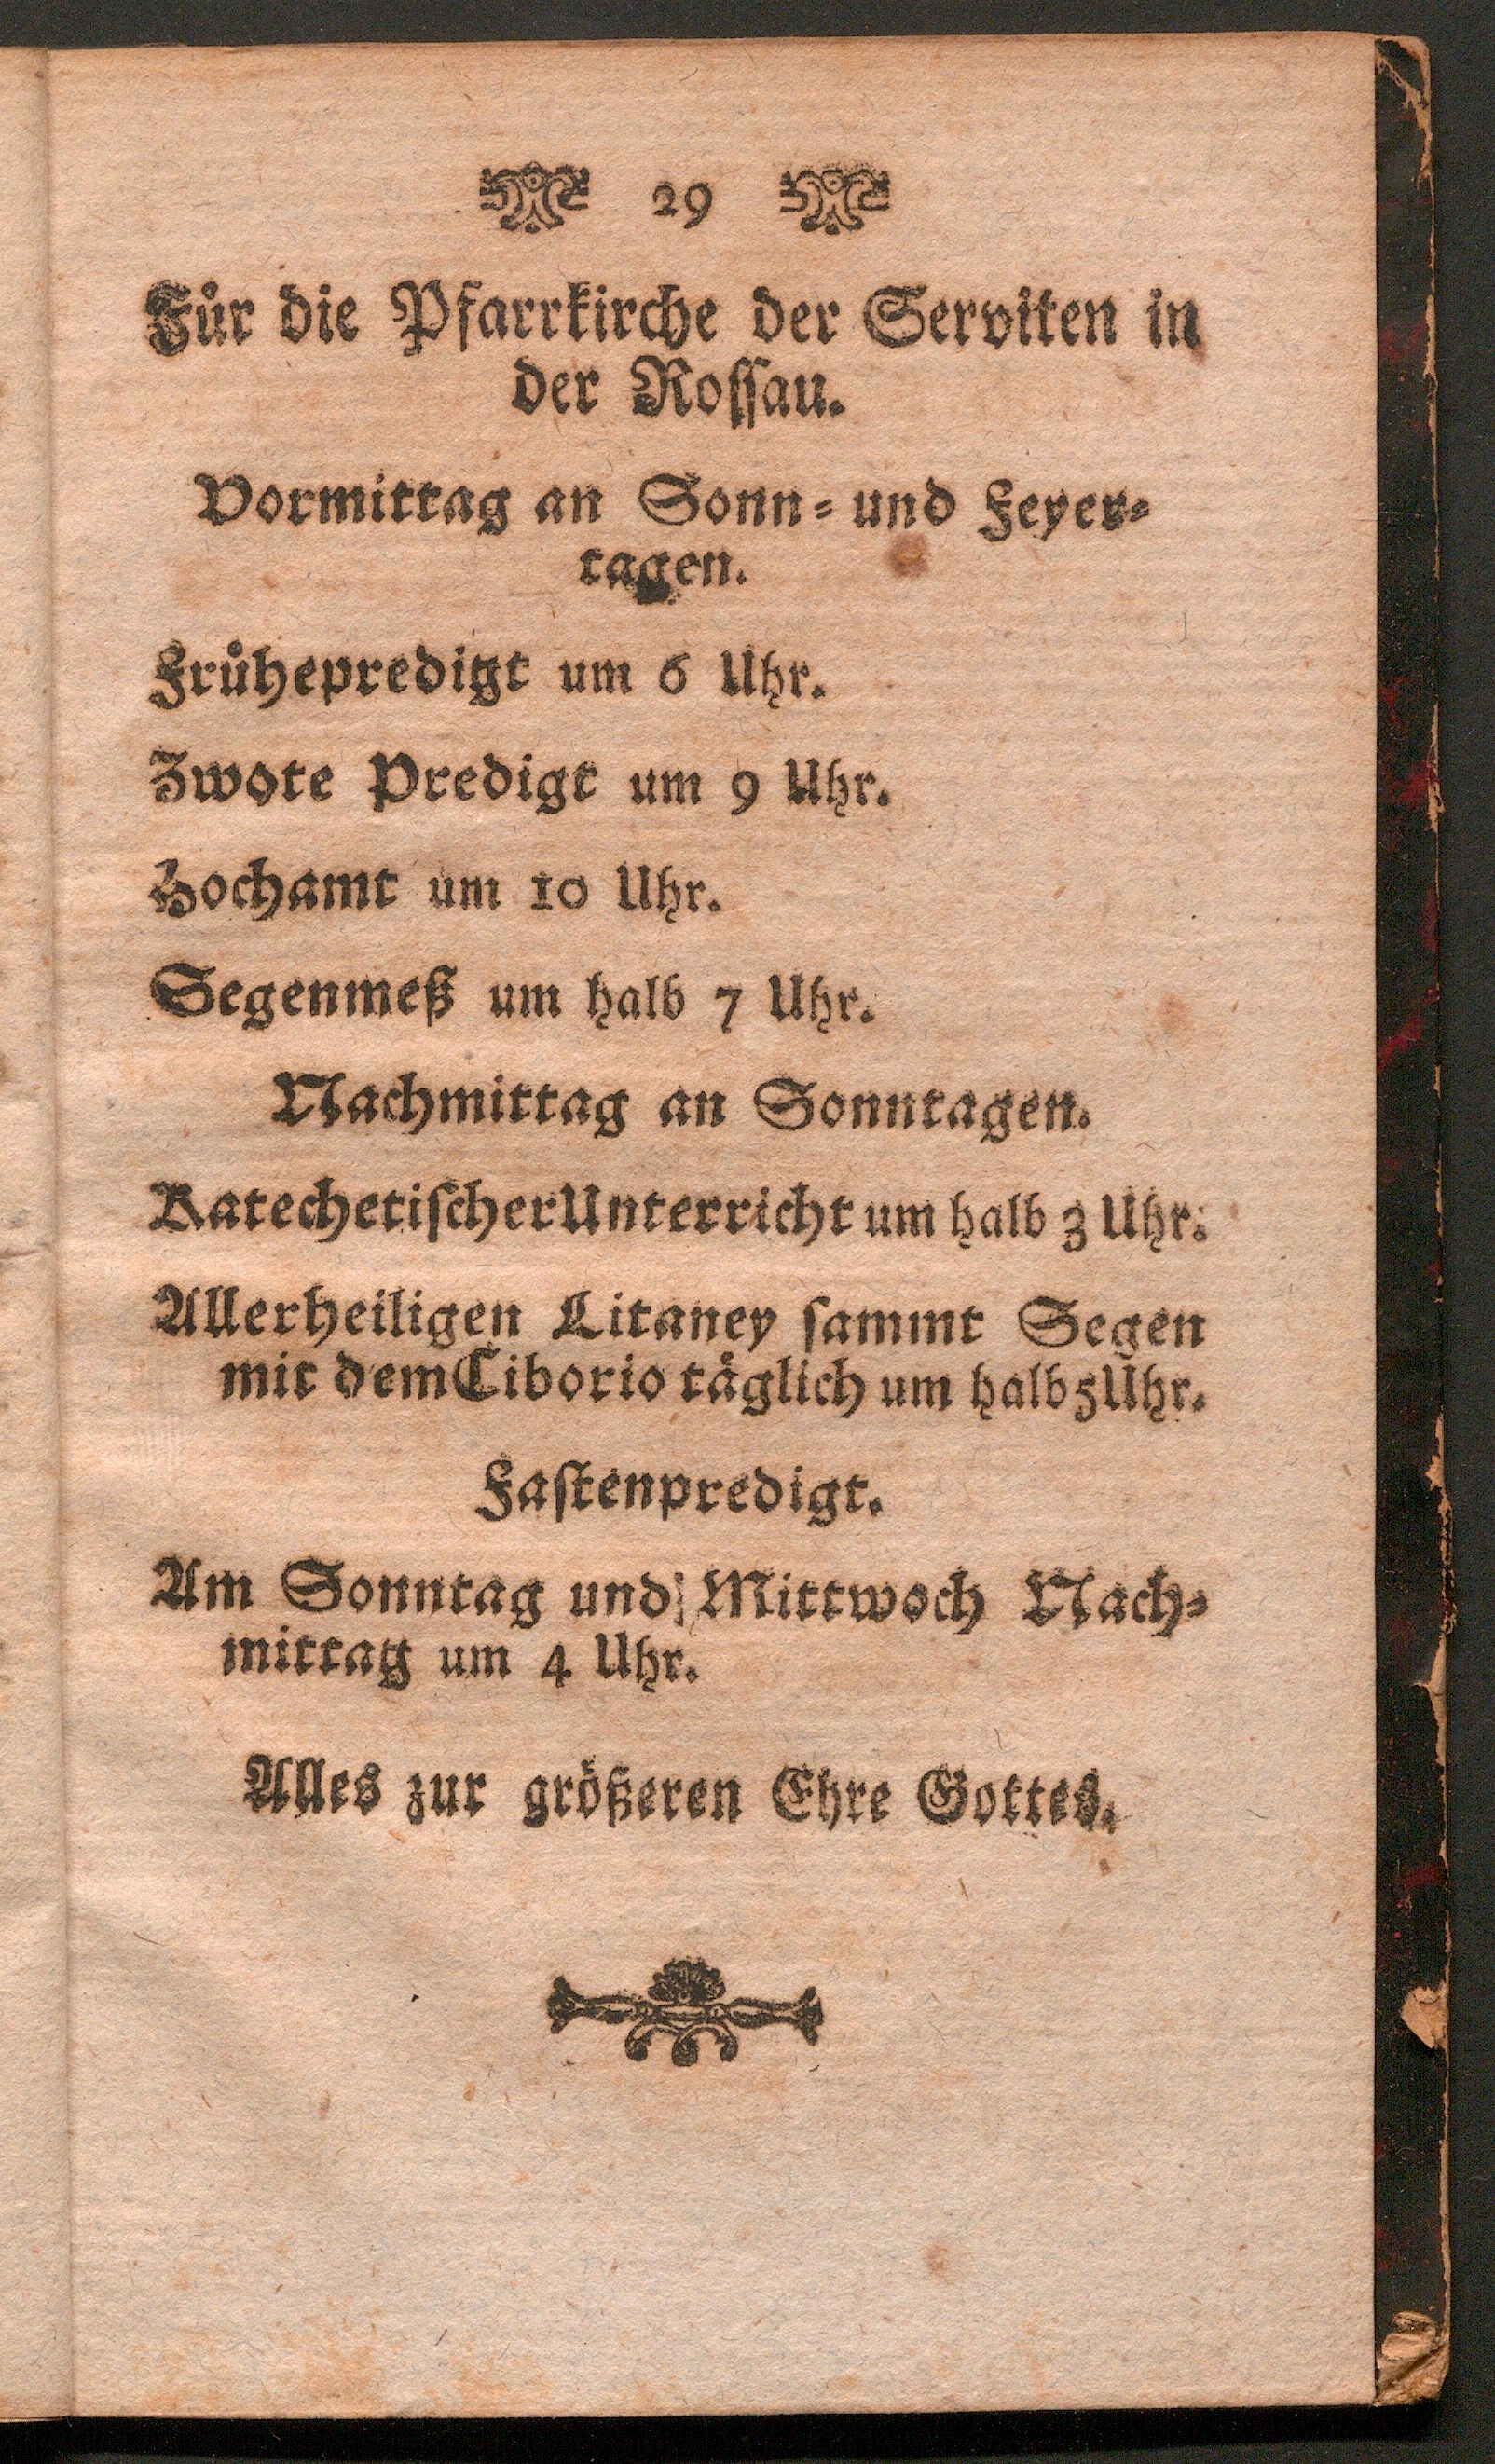 29
Für die Pfarrkirche der Serviten in
der Rossau.
Vormittag an Sonn- und Feyer-
tagen.
Frühepredigt um 6 Uhr.
Zwote Predigt um 9 Uhr.
Hochamt um 10 Uhr.
Segenmeß um halb 7 Uhr.
Nachmittag an Sonntagen.
Katechetischer Unterricht um halb 3 Uhr.
Allerheiligen Litaney sammt Segen
mit dem Ciborio täglich um halb 5 Uhr.
Fastenpredigt.
Am Sonntag und Mittwoch Nach-
mittag um 4 Uhr.
Alles zur größeren Ehre Gottes.